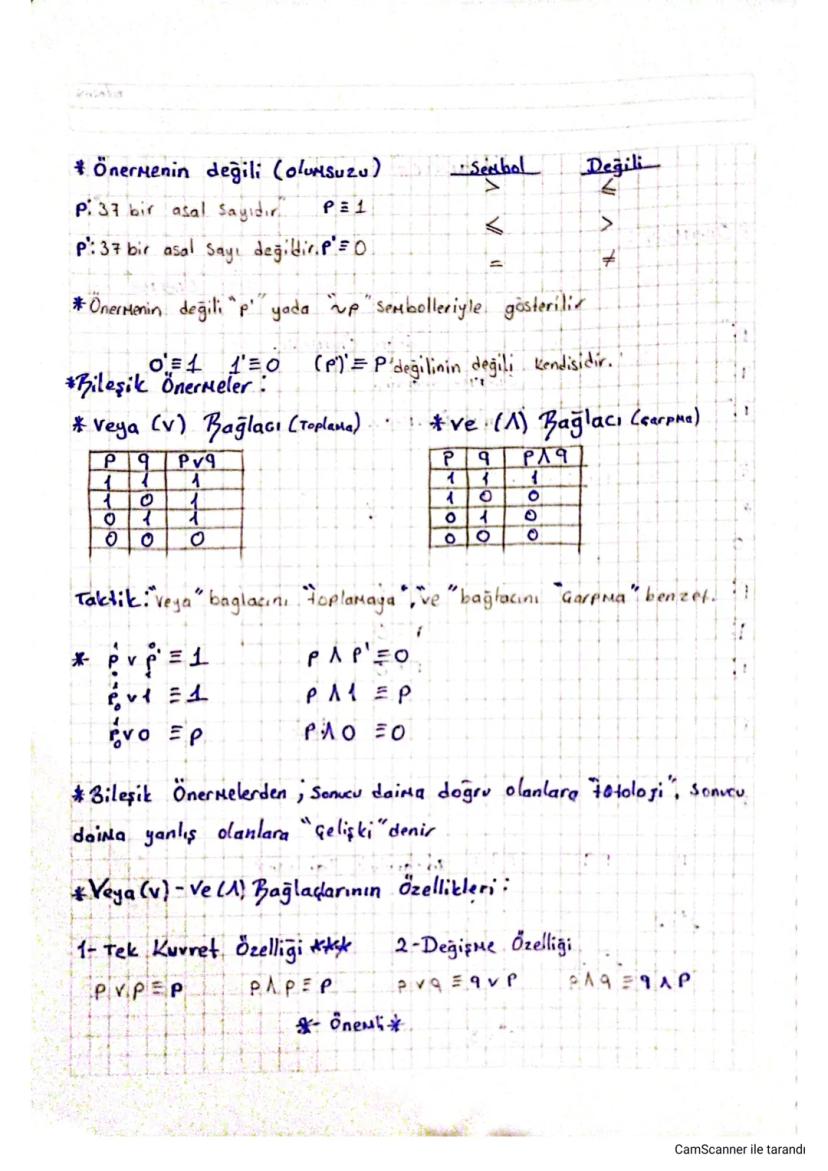 * Önermenin değili (olumsuzu)
Sembol Değili
> ⩽
p: 37 bir asal sayıdır. p ≡ 1
⩽ >
p': 37 bir asal sayı değildir. p' ≡ 0
= ≠
* Önermenin değili "p'" yada "~p" sembolleriyle gösterilir
0' ≡ 1 1' ≡ 0 (p')' ≡ p değilinin değili kendisidir.
* Bileşik Önermeler :
* veya (v) Bağlacı (Toplama)
p q pvq
1 1 1
1 0 1
0 1 1
0 0 0
* ve (Λ) Bağlacı (Çarpma)
p q pΛq
1 1 1
1 0 0
0 1 0
0 0 0
Taktik: "veya" baglacını "toplamaya", "ve" bağlacını "Çarpma" benzet.
* p v p' ≡ 1 p Λ p' ≡ 0
p v 1 ≡ 1 p Λ 1 ≡ p
p v 0 ≡ p p Λ 0 ≡ 0
* Bileşik Önermelerden ; Sonucu daima doğru olanlara "totoloji", sonucu
daima yanlış olanlara "Çelişki" denir
* Veya (v) - Ve (Λ) Bağlaçlarının Özellikleri :
1- Tek Kuvvet Özelliği ***
p v p ≡ p p Λ p ≡ p
2- Değişme Özelliği
p v q ≡ q v p p Λ q ≡ q Λ p
*- Önemli *
CamScanner ile tarandı